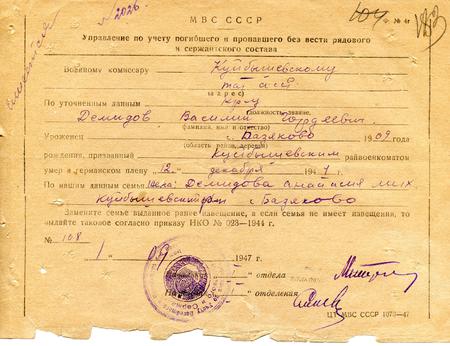 МВС СССР
№ 4г
№ 2026
Управление по учету погибшего и пропавшего без вести рядового
и сержантского состава
Военному комиссару Куйбышевскому
тат асср
(адрес)
По уточненным данным кр-ц
(должность, звание,
Демидов Василий Гордеевич
фамилия, имя и отчество)
Уроженец с. Базяково 1909 года
(область, район, деревня)
рождения, призванный Куйбышевским райвоенкоматом
умер в германском плену „12" декабря 194 г.
По нашим данным семья (жена) Демидова Анастасия Мих
Куйбышевский с. Базяково
Замените семье выданное ранее извещение, а если семья не имеет извещения, то
вышлите таковое согласно приказу НКО № 023—1944 г.
№ 108
1 09 1947 г.
отдела
отделения
ЦТ МВС СССР 1073—47